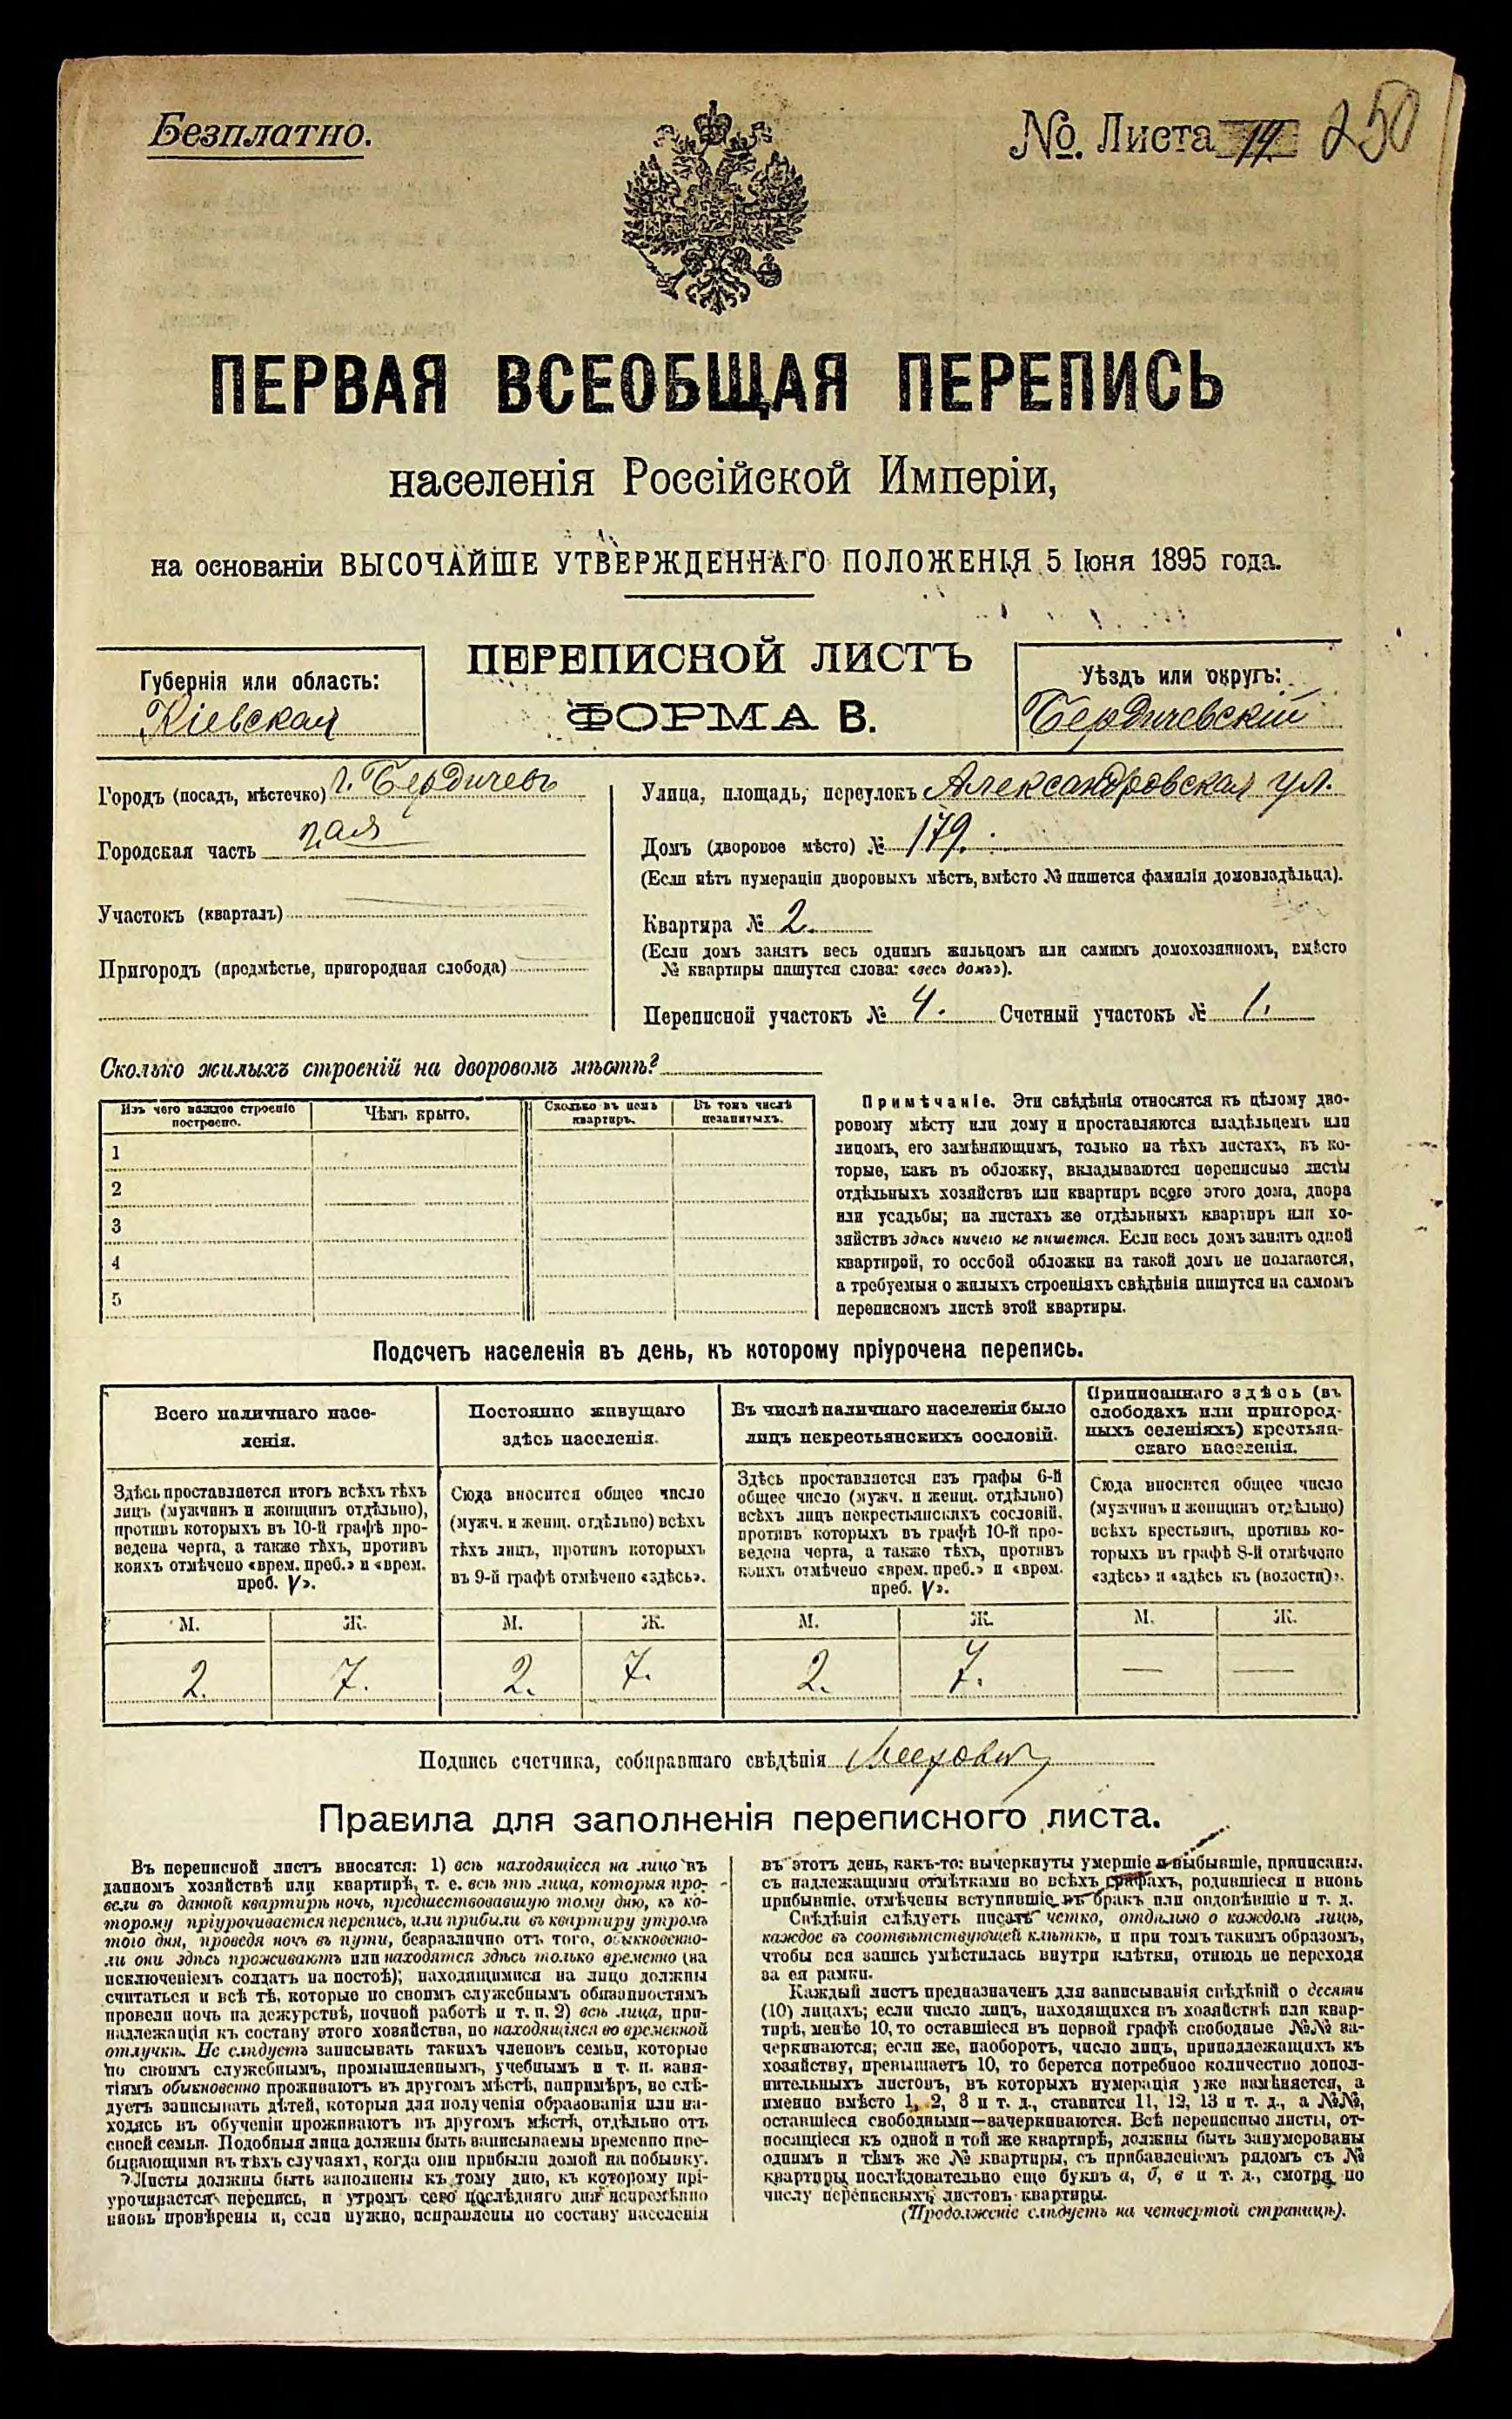 Безплатно.
№. Листа 14. 250
ПЕРВАЯ ВСЕОБЩАЯ ПЕРЕПИСЬ
населенія Россійской Имперіи,
на основаніи ВЫСОЧАЙШЕ УТВЕРЖДЕННАГО ПОЛОЖЕНІЯ 5 Іюня 1895 года.
ПЕРЕПИСНОЙ ЛИСТЪ
ФОРМА В.
Губернія или область:
Кіевская
Уѣздъ или округъ:
Бердичевскій
Городъ (посадъ, мѣстечко) г. Бердичевъ
Городская часть
Участокъ (кварталъ)
Пригородъ (предмѣстье, пригородная слобода)
Улица, площадь, переулокъ Александровская ул.
Домъ (дворовое мѣсто) № 179.
(Если нѣтъ нумераціи дворовыхъ мѣстъ, вмѣсто № пишется фамилія домовладѣльца).
Квартира № 2.
(Если домъ занятъ весь однимъ жильцомъ или самимъ домохозяиномъ, вмѣсто
№ квартиры пишутся слова: «весь домъ»).
Переписной участокъ № 4. Счетный участокъ № 1.
Сколько жилыхъ строеній на дворовомъ мѣстѣ?
Изъ чего каждое строеніе
построено.
Чѣмъ крыто.
Сколько въ немъ
квартиръ.
Въ томъ числѣ
незанятыхъ.
1
2
3
4
5
Примѣчаніе. Эти свѣдѣнія относятся къ цѣлому дво-
ровому мѣсту или дому и проставляются владѣльцемъ или
лицомъ, его замѣняющимъ, только на тѣхъ листахъ, въ ко-
торые, какъ въ обложку, вкладываются переписные листы
отдѣльныхъ хозяйствъ или квартиръ всего этого дома, двора
или усадьбы; на листахъ же отдѣльныхъ квартиръ или хо-
зяйствъ здѣсь ничего не пишется. Если весь домъ занятъ одной
квартирой, то особой обложки на такой домъ не полагается,
а требуемыя о жилыхъ строеніяхъ свѣдѣнія пишутся на самомъ
переписномъ листѣ этой квартиры.
Подсчетъ населенія въ день, къ которому пріурочена перепись.
Всего наличнаго насе-
ленія.
Здѣсь проставляется итогъ всѣхъ тѣхъ
лицъ (мужчинъ и женщинъ отдѣльно),
противъ которыхъ въ 10-й графѣ про-
ведена черта, а также тѣхъ, противъ
коихъ отмѣчено «врем. преб.» и «врем.
преб. V».
Постоянно живущаго
здѣсь населенія.
Сюда вносится общее число
(мужч. и женщ. отдѣльно) всѣхъ
тѣхъ лицъ, противъ которыхъ
въ 9-й графѣ отмѣчено «здѣсь».
Въ числѣ наличнаго населенія было
лицъ некрестьянскихъ сословій.
Здѣсь проставляется изъ графы 6-й
общее число (мужч. и женщ. отдѣльно)
всѣхъ лицъ некрестьянскихъ сословій,
противъ которыхъ въ графѣ 10-й про-
ведена черта, а также тѣхъ, противъ
коихъ отмѣчено «врем. преб.» и «врем.
преб. V».
Приписаннаго здѣсь (въ
слободахъ или пригород-
ныхъ селеніяхъ) крестьян-
скаго населенія.
Сюда вносится общее число
(мужчинъ и женщинъ отдѣльно)
всѣхъ крестьянъ, противъ ко-
торыхъ въ графѣ 8-й отмѣчено
«здѣсь» и «здѣсь къ (волости)».
М. Ж. М. Ж. М. Ж. М. Ж.
2. 7. 2. 7. 2. 7. — —
Подпись счетчика, собиравшаго свѣдѣнія
Правила для заполненія переписного листа.
Въ переписной листъ вносятся: 1) всѣ находящіеся на лицо въ
данномъ хозяйствѣ или квартирѣ, т. е. всѣ тѣ лица, которыя про-
вели въ данной квартирѣ ночь, предшествовавшую тому дню, къ ко-
торому пріурочивается перепись, или прибыли въ квартиру утромъ
того дня, проведя ночь въ пути, безразлично отъ того, обыкновенно-
ли они здѣсь проживаютъ или находятся здѣсь только временно (за
исключеніемъ солдатъ на постоѣ); находящимися на лицо должны
считаться и всѣ тѣ, которые по своимъ служебнымъ обязанностямъ
провели ночь на дежурствѣ, ночной работѣ и т. п. 2) всѣ лица, при-
надлежащія къ составу этого хозяйства, но находящіяся во временной
отлучкѣ. Не слѣдуетъ записывать такихъ членовъ семьи, которые
по своимъ служебнымъ, промышленнымъ, учебнымъ и т. п. заня-
тіямъ обыкновенно проживаютъ въ другомъ мѣстѣ, напримѣръ, не слѣ-
дуетъ записывать дѣтей, которыя для полученія образованія или на-
ходясь въ обученіи проживаютъ въ другомъ мѣстѣ, отдѣльно отъ
своей семьи. Подобныя лица должны быть записываемы временно пре-
бывающими въ тѣхъ случаяхъ, когда они прибыли домой на побывку.
Листы должны быть заполнены къ тому дню, къ которому прі-
урочивается перепись, и утромъ сего послѣдняго дня непремѣнно
вновь провѣрены и, если нужно, исправлены по составу населенія
въ этотъ день, какъ-то: вычеркнуты умершіе и выбывшіе, приписаны,
съ надлежащими отмѣтками во всѣхъ графахъ, родившіеся и вновь
прибывшіе, отмѣчены вступившіе въ бракъ или овдовѣвшіе и т. д.
Свѣдѣнія слѣдуетъ писать четко, отдѣльно о каждомъ лицѣ,
каждое въ соотвѣтствующей клѣткѣ, и при томъ такимъ образомъ,
чтобы вся запись умѣстилась внутри клѣтки, отнюдь не переходя
за ея рамки.
Каждый листъ предназначенъ для записыванія свѣдѣній о десяти
(10) лицахъ; если число лицъ, находящихся въ хозяйствѣ или квар-
тирѣ, менѣе 10, то оставшіеся въ первой графѣ свободные №№ за-
черкиваются; если же, наоборотъ, число лицъ, принадлежащихъ къ
хозяйству, превышаетъ 10, то берется потребное количество допол-
нительныхъ листовъ, въ которыхъ нумерація уже измѣняется, а
именно вмѣсто 1, 2, 3 и т. д., ставится 11, 12, 13 и т. д., а №№,
оставшіеся свободными—зачеркиваются. Всѣ переписные листы, от-
носящіеся къ одной и той же квартирѣ, должны быть занумерованы
однимъ и тѣмъ же № квартиры, съ прибавленіемъ рядомъ съ №
квартиры послѣдовательно еще буквъ а, б, в и т. д., смотря по
числу переписныхъ листовъ квартиры.
(Продолженіе слѣдуетъ на четвертой страницѣ).